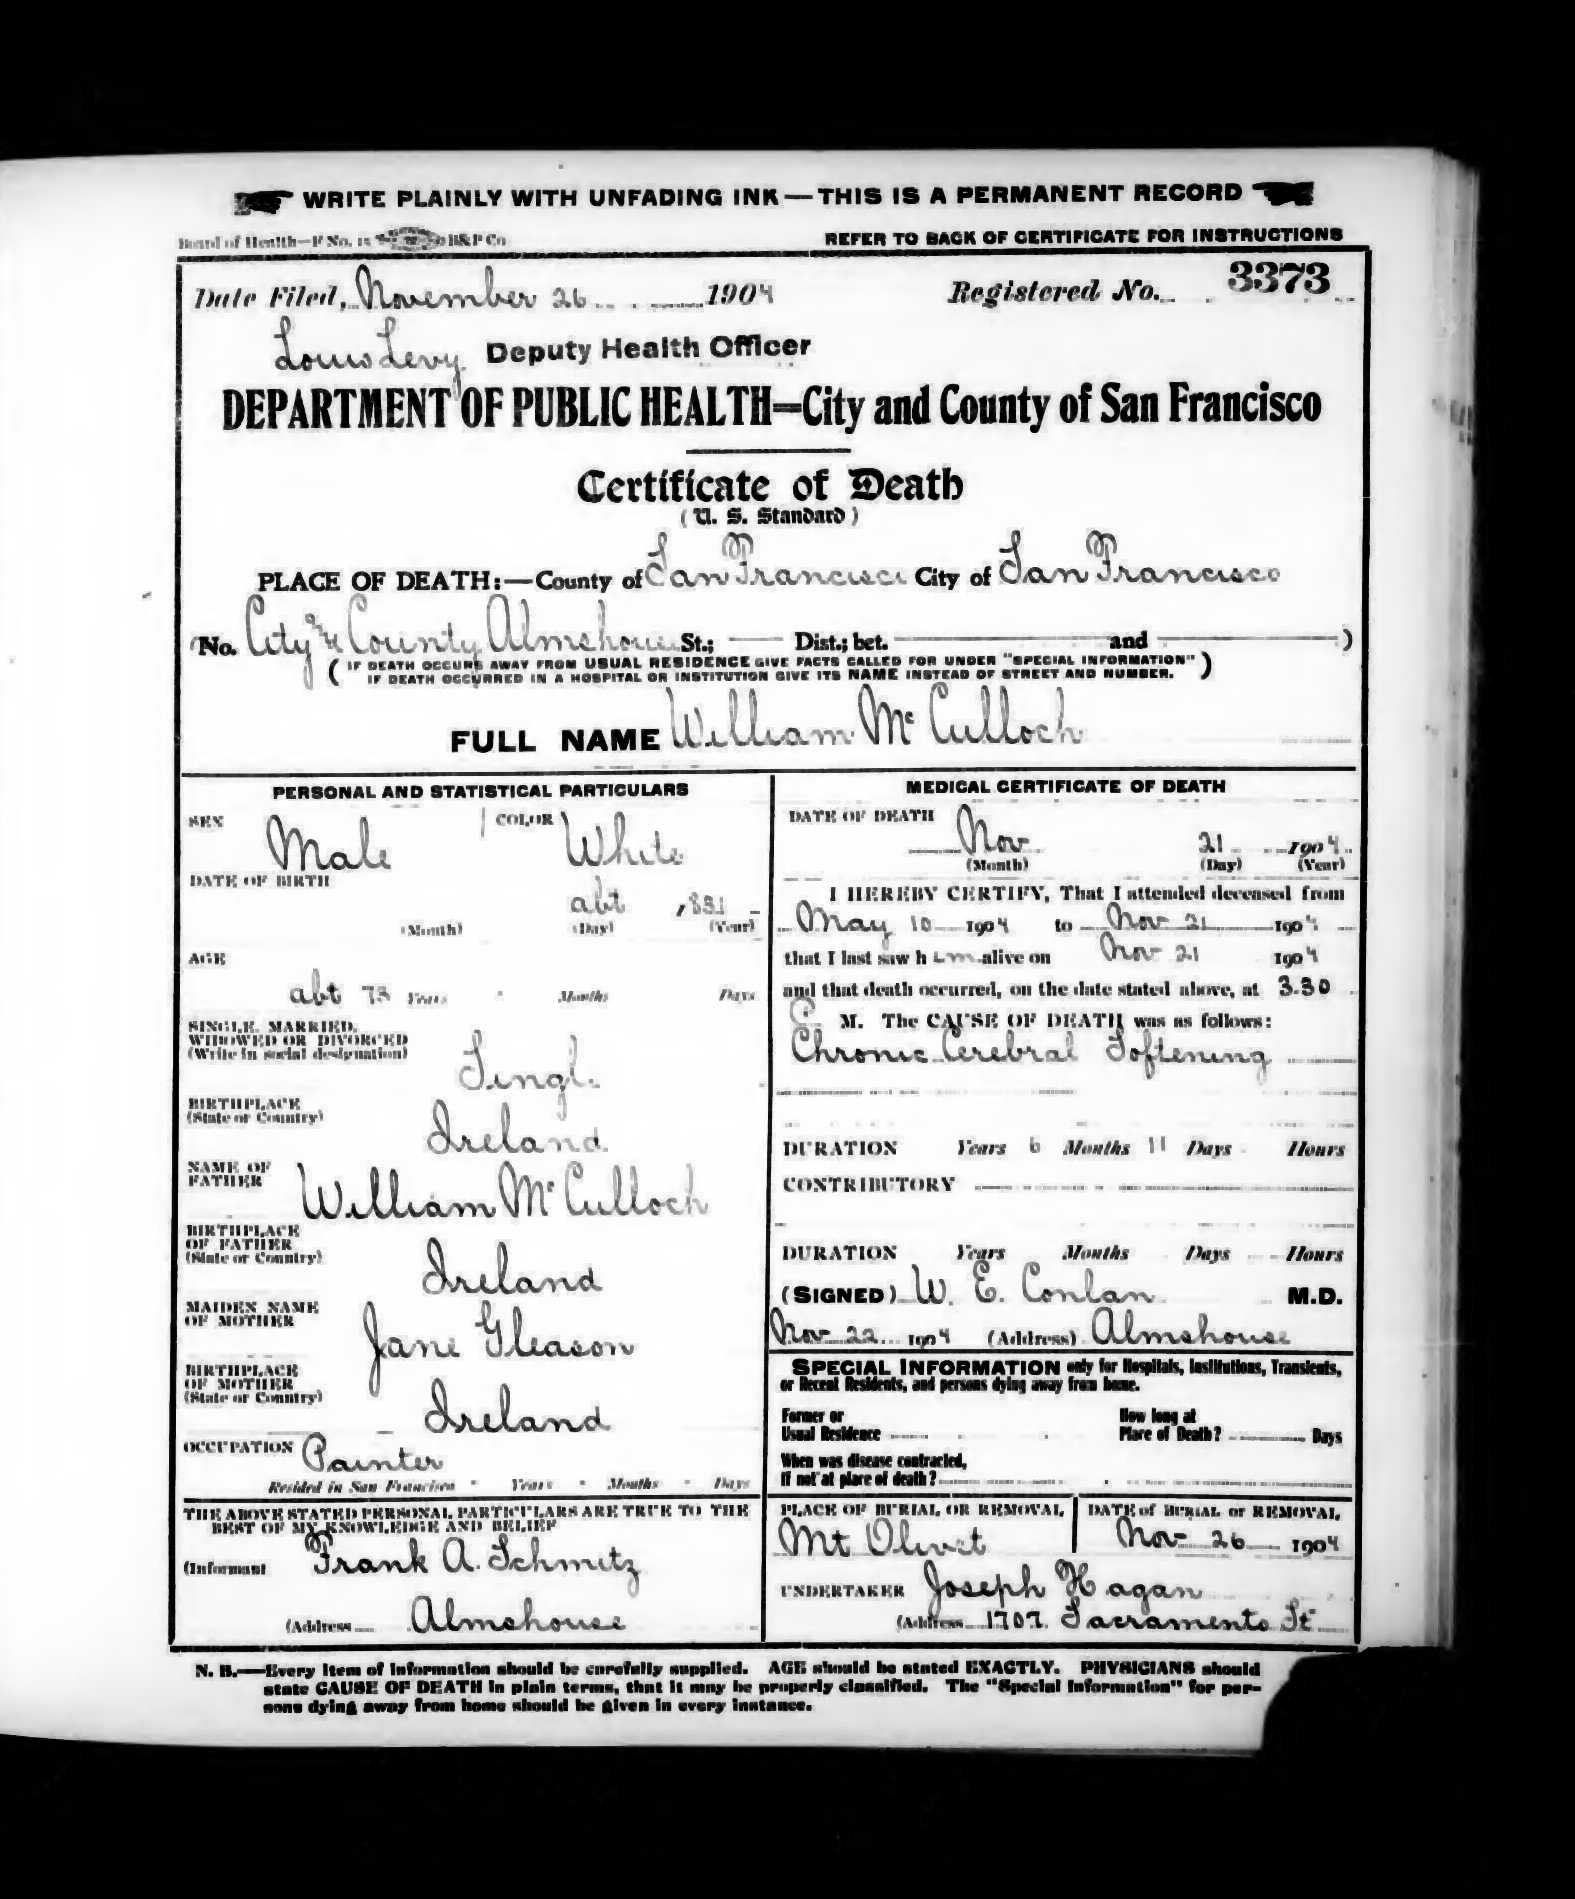 WRITE PLAINLY WITH UNFADING INK — THIS IS A PERMANENT RECORD
Board of Health—F No. 15 B&P Co
REFER TO BACK OF CERTIFICATE FOR INSTRUCTIONS
Date Filed, November 26 1904 Registered No. 3373
Louis Levy Deputy Health Officer
DEPARTMENT OF PUBLIC HEALTH—City and County of San Francisco
Certificate of Death
(U. S. Standard)
PLACE OF DEATH:—County of San Francisco City of San Francisco
(No. City & County Almshouse St.; Dist.; bet. and )
(IF DEATH OCCURS AWAY FROM USUAL RESIDENCE GIVE FACTS CALLED FOR UNDER "SPECIAL INFORMATION"
IF DEATH OCCURRED IN A HOSPITAL OR INSTITUTION GIVE ITS NAME INSTEAD OF STREET AND NUMBER.)
FULL NAME William McCulloch
PERSONAL AND STATISTICAL PARTICULARS
SEX Male COLOR White
DATE OF BIRTH
abt 1831
(Month) (Day) (Year)
AGE
abt 73 Years Months Days
SINGLE, MARRIED,
WIDOWED OR DIVORCED
(Write in social designation)
Single
BIRTHPLACE
(State or Country)
Ireland
NAME OF
FATHER
William McCulloch
BIRTHPLACE
OF FATHER
(State or Country)
Ireland
MAIDEN NAME
OF MOTHER
Jane Gleason
BIRTHPLACE
OF MOTHER
(State or Country)
Ireland
OCCUPATION Painter
Resided in San Francisco Years Months Days
THE ABOVE STATED PERSONAL PARTICULARS ARE TRUE TO THE
BEST OF MY KNOWLEDGE AND BELIEF
(Informant Frank A. Schmitz
(Address Almshouse
MEDICAL CERTIFICATE OF DEATH
DATE OF DEATH
Nov 21 1904
(Month) (Day) (Year)
I HEREBY CERTIFY, That I attended deceased from
May 10 1904 to Nov 21 1904
that I last saw h im alive on Nov 21 1904
and that death occurred, on the date stated above, at 3.30
P. M. The CAUSE OF DEATH was as follows:
Chronic Cerebral Softening
DURATION Years 6 Months 11 Days Hours
CONTRIBUTORY
DURATION Years Months Days Hours
(SIGNED) W. E. Conlan M.D.
Nov 22 1904 (Address) Almshouse
SPECIAL INFORMATION only for Hospitals, Institutions, Transients,
or Recent Residents, and persons dying away from home.
Former or
Usual Residence
How long at
Place of Death? Days
When was disease contracted,
If not at place of death?
PLACE OF BURIAL OR REMOVAL
Mt Olivet
DATE of BURIAL or REMOVAL
Nov 26 1904
UNDERTAKER Joseph Hagan
(Address 1707 Sacramento St
N. B.—Every item of information should be carefully supplied. AGE should be stated EXACTLY. PHYSICIANS should
state CAUSE OF DEATH in plain terms, that it may be properly classified. The "Special Information" for per-
sons dying away from home should be given in every instance.